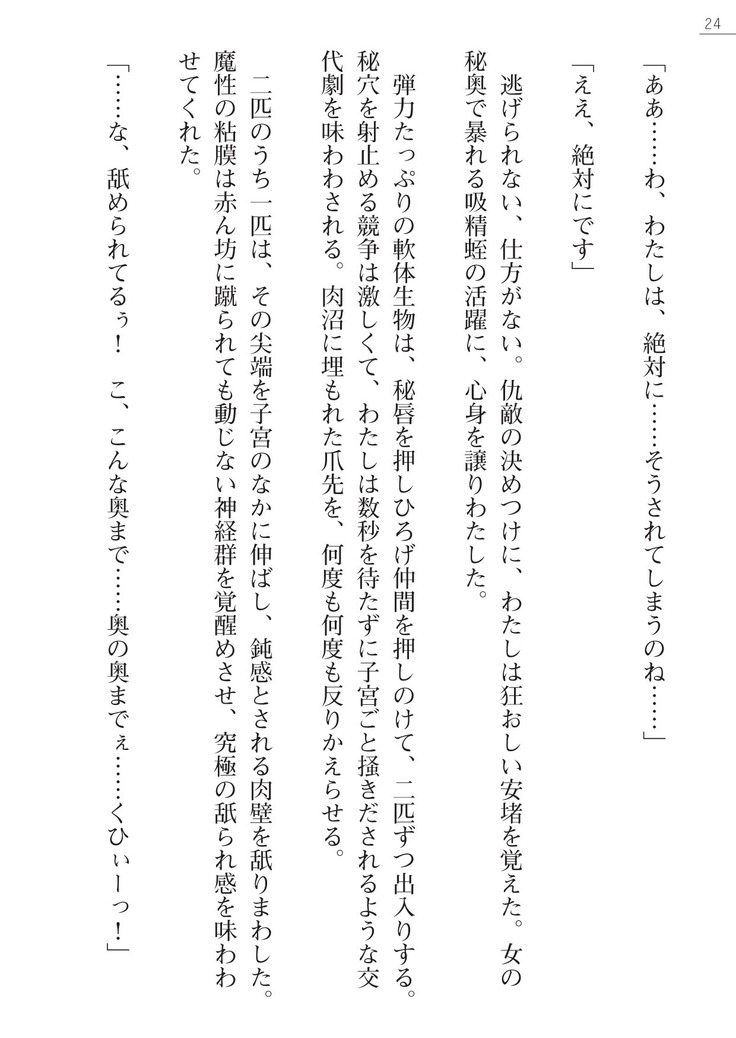 24
「ああ……わ、わたしは、絶対に……そうされてしまうのね……」
「ええ、絶対にです」
逃げられない、仕方がない。仇敵の決めつけに、わたしは狂おしい安堵を覚えた。女の
秘奥で暴れる吸精蛭の活躍に、心身を譲りわたした。
弾力たっぷりの軟体生物は、秘唇を押しひろげ仲間を押しのけて、二匹ずつ出入りする。
秘穴を射止める競争は激しくて、わたしは数秒を待たずに子宮ごと掻きだされるような交
代劇を味わわされる。肉沼に埋もれた爪先を、何度も何度も反りかえらせる。
二匹のうち一匹は、その尖端を子宮のなかに伸ばし、鈍感とされる肉壁を舐りまわした。
魔性の粘膜は赤ん坊に蹴られても動じない神経群を覚醒めさせ、究極の舐られ感を味わわ
せてくれた。
「……な、舐められてるぅ！　こ、こんな奥まで……奥の奥までぇ……くひぃーっ！」